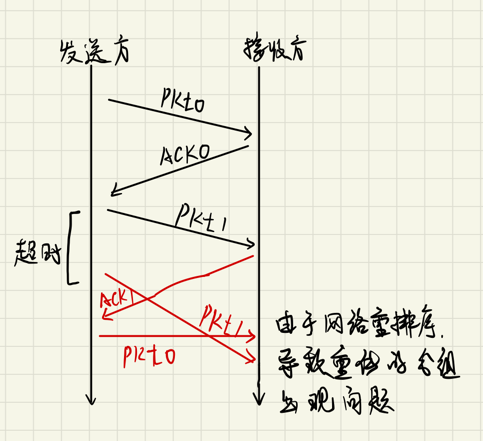 发送方
接收方
PKt0
ACK0
PKt1
超时
ACK1
PKt1
PKt0
由于网络重排序,
导致重传的分组
出现问题